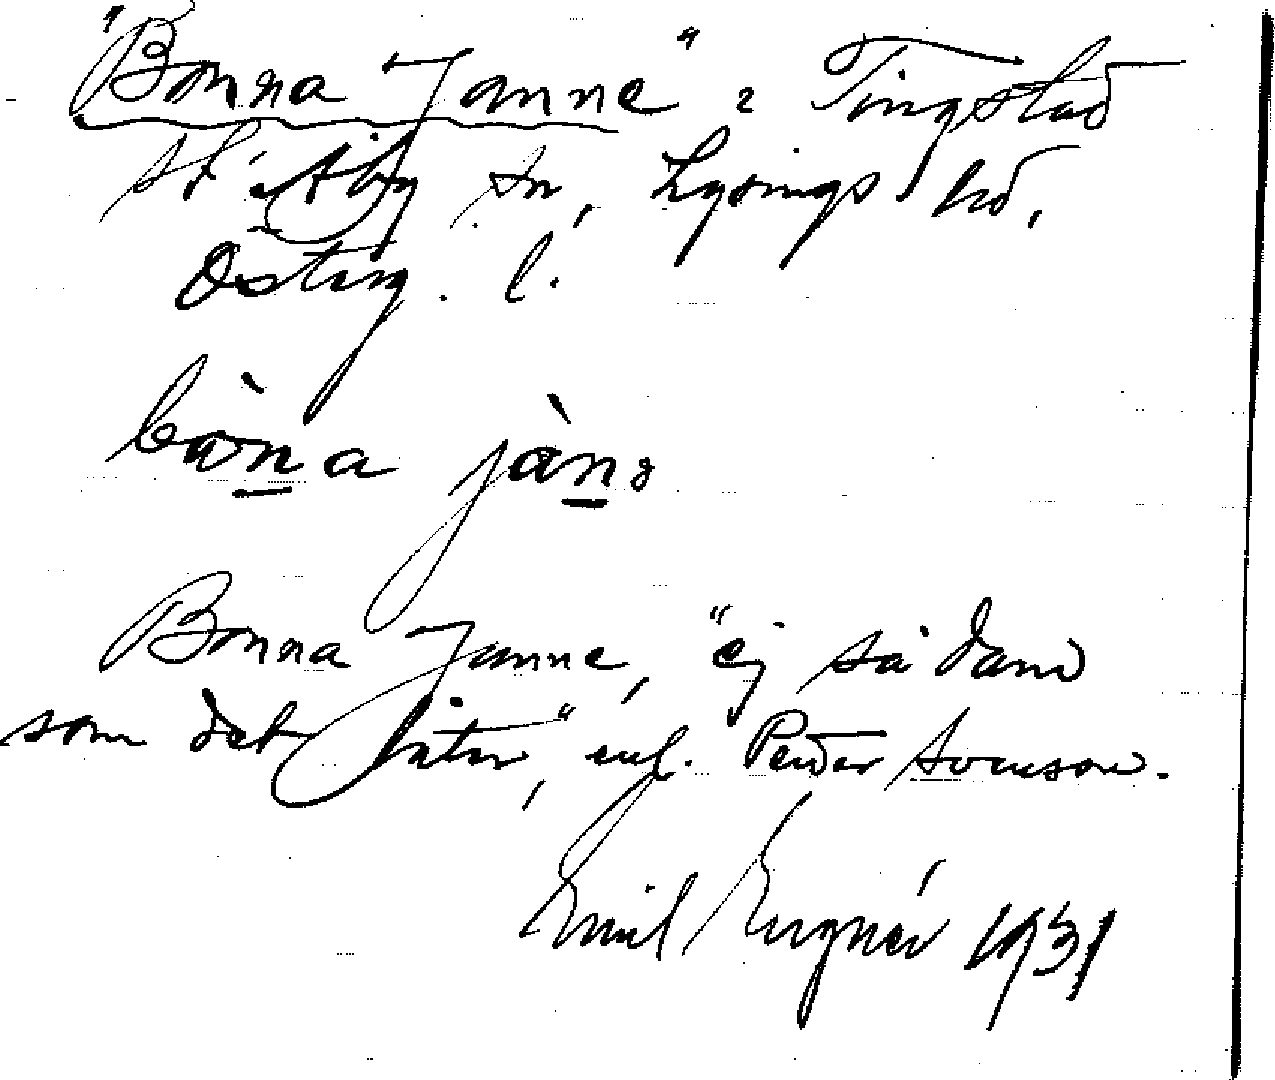 "Bonna Janne" i Tingstad
st. Åby sn, Lysings hd,
Österg. l.
bòna jànə
Bonna Janne, "ej sådand
som det låter", enl. Peder
Emil 1931